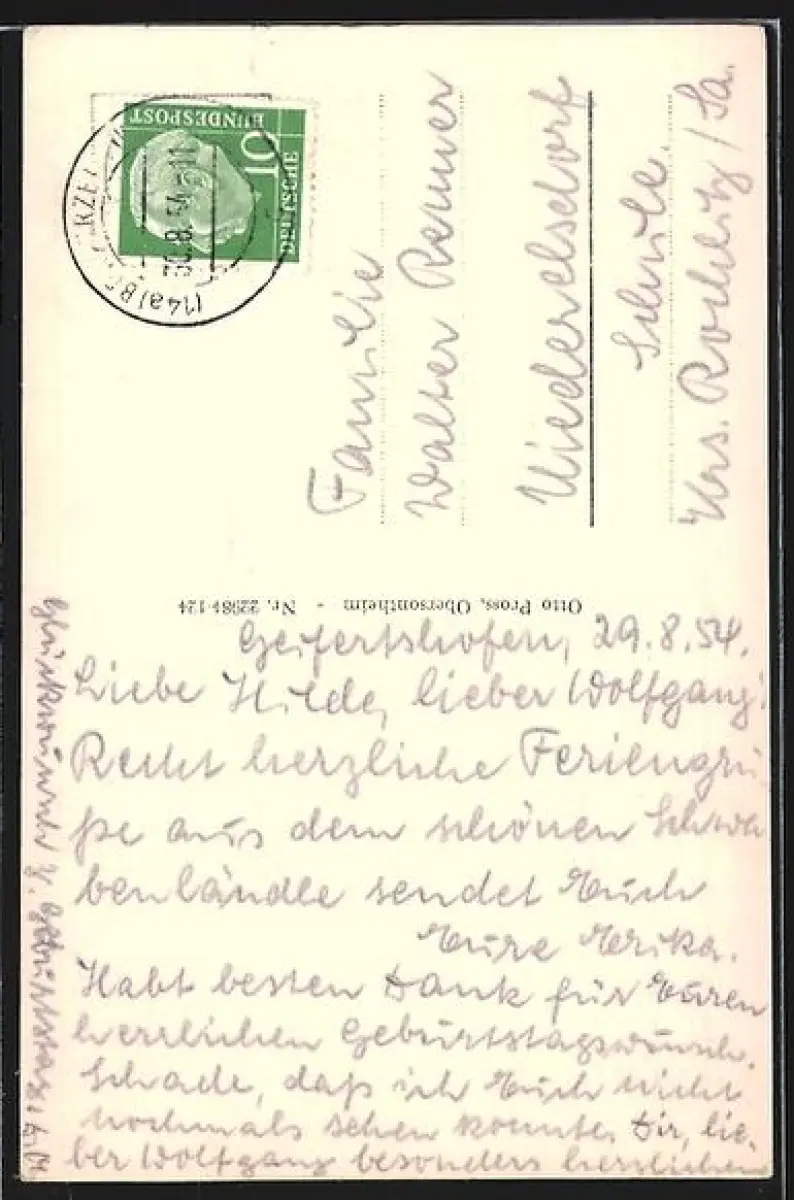 DEUTSCHE
10
BUNDESPOST
30.8.54
(14a)
Familie
Walter Renner
Niederelsdorf
Schule.
Krs. Rochlitz / Sa.
Otto Pross, Obersontheim - Nr. 22984-124
Geifertshofen, 29.8.54.
Liebe Hilde, lieber Wolfgang!
Recht herzliche Feriengrü-
ße aus dem schönen Schwa
benländle sendet Euch
Eure Erika.
Habt besten Dank für Euren
herzlichen Geburtstagswunsch.
Schade, daß ich Euch nicht
nochmals sehen konnte. Dir, lie-
ber Wolfgang besonders herzlichen
Glückwunsch z. Geburtstag,